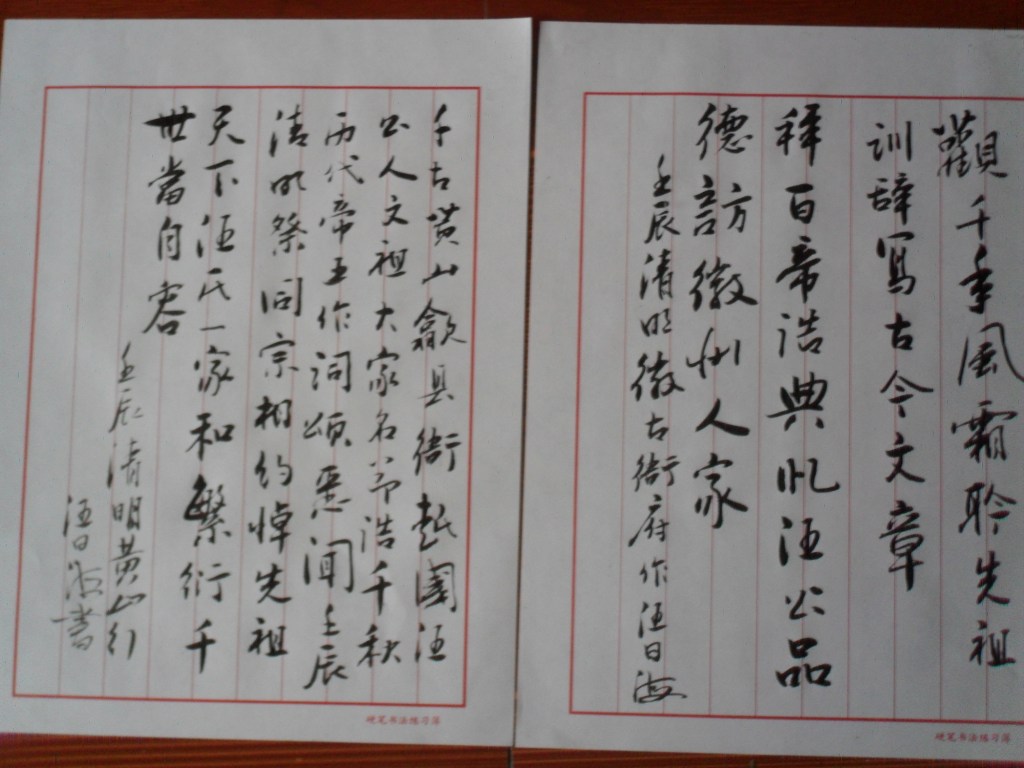 觀千年風霜聆先祖
訓辞寫古今文章
釋百帝浩典 汪公品
德訪徽州人家
壬辰清明徽古衙府作汪日海
千古黄山歙县衙 國汪
公人文祖大家名 浩千秋
历代帝王作词颂 闻壬辰
清明祭同宗相约悼先祖
天下汪氏一家和繁衍千
世當自容
壬辰清明黄山行
汪日海書
硬笔书法练习簿
硬笔书法练习簿